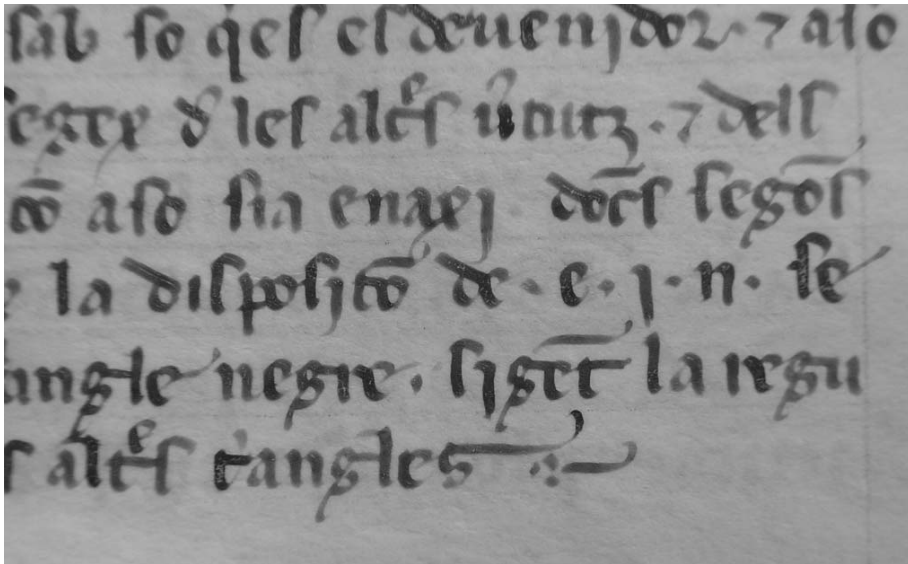 sab so q̇es es deuenidor · ⁊ aso
segex đ les altᵉs ũtutz · ⁊ dels
cō aso sia enaxj docs̄ segōs
la disposicō de · e · j · n · se
angle negre . sigēt la regu
s altᵉs tⁱangles